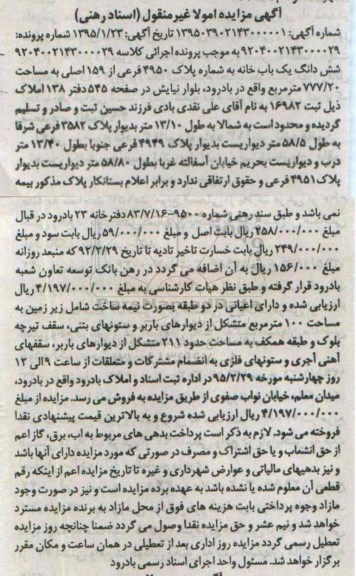 آگهی مزایده اموال غیرمنقول (اسناد رهنی)
شماره آگهی: ۱۳۹۵۰۳۹۰۲۱۴۳۰۰۰۰۰۱ تاریخ آگهی: ۱۳۹۵/۱/۲۳ شماره پرونده:
۹۲۰۴۰۰۲۱۴۳۰۰۰۰۲۹ به موجب پرونده اجرائی کلاسه ۹۲۰۴۰۰۲۱۴۳۰۰۰۰۲۹
شش دانگ یک باب خانه به شماره پلاک ۴۹۵۰ فرعی از ۱۵۹ اصلی به مساحت
۷۷۷/۲۰ مترمربع واقع در بادرود، بلوار نیایش در صفحه ۵۴۵ دفتر ۱۳۸ املاک
ذیل ثبت ۱۶۹۸۲ به نام آقای علی نقدی بادی فرزند حسین ثبت و صادر و تسلیم
گردیده و محدود است به شمالا به طول ۱۳/۱۰ متر بدیوار پلاک ۳۵۸۲ فرعی شرقا
به طول ۵۸/۵ متر دیواریست بدیوار پلاک ۴۹۴۹ فرعی جنوبا بطول ۱۳/۴۰ متر
درب و دیواریست بحریم خیابان آسفالته غربا بطول ۵۸/۸۰ متر دیواریست بدیوار
پلاک ۴۹۵۱ فرعی و حقوق ارتفاقی ندارد و برابر اعلام بستانکار پلاک مذکور بیمه
نمی باشد و طبق سند رهنی شماره ۹۵۰۰-۸۳/۷/۱۶ دفترخانه ۲۳ بادرود در قبال
مبلغ ۴۵۸/۰۰۰/۰۰۰ ریال بابت اصل و مبلغ ۵۹/۰۰۰/۰۰۰ ریال بابت سود و مبلغ
۲۴۹/۰۰۰/۰۰۰ ریال بابت خسارت تاخیر تادیه تا تاریخ ۹۲/۲/۲۹ که منبعد روزانه
مبلغ ۱۵۶/۰۰۰ ریال به آن اضافه می گردد در رهن بانک توسعه تعاون شعبه
بادرود قرار گرفته و طبق نظر هیات کارشناسی به مبلغ ۴/۱۹۷/۰۰۰/۰۰۰ ریال
ارزیابی شده و دارای اعیانی در دو طبقه بصورت نیمه ساخت شامل زیر زمین به
مساحت ۱۰۰ مترمربع متشکل از دیوارهای باربر و ستونهای بتنی، سقف تیرچه
بلوک و طبقه همکف به مساحت حدود ۲۱۱ متشکل از دیوارهای باربر، سقفهای
آهنی آجری و ستونهای فلزی به انضمام مشترکات و متعلقات از ساعت ۹ الی ۱۲
روز چهارشنبه مورخه ۹۵/۲/۲۹ در اداره ثبت اسناد و املاک بادرود واقع در بادرود،
میدان معلم، خیابان نواب صفوی از طریق مزایده به فروش می رسد. مزایده از مبلغ
۴/۱۹۷/۰۰۰/۰۰۰ ریال ارزیابی شده شروع و به بالاترین قیمت پیشنهادی نقدا
فروخته می شود. لازم به ذکر است پرداخت بدهی های مربوط به اب، برق، گاز اعم
از حق انشعاب و یا حق اشتراک و مصرف در صورتی که مورد مزایده دارای آنها باشد
و نیز بدهیهای مالیاتی و عوارض شهرداری و غیره تا تاریخ مزایده اعم از اینکه رقم
قطعی آن معلوم شده یا نشده باشد به عهده برنده مزایده است و نیز در صورت وجود
مازاد وجوه پرداختی بابت هزینه های فوق از محل مازاد به برنده مزایده مسترد
خواهد شد و نیم عشر و حق مزایده نقدا وصول می گردد ضمنا چنانچه روز مزایده
تعطیل رسمی گردد مزایده روز اداری بعد از تعطیلی در همان ساعت و مکان مقرر
برگزار خواهد شد. مسئول واحد اجرای اسناد رسمی بادرود